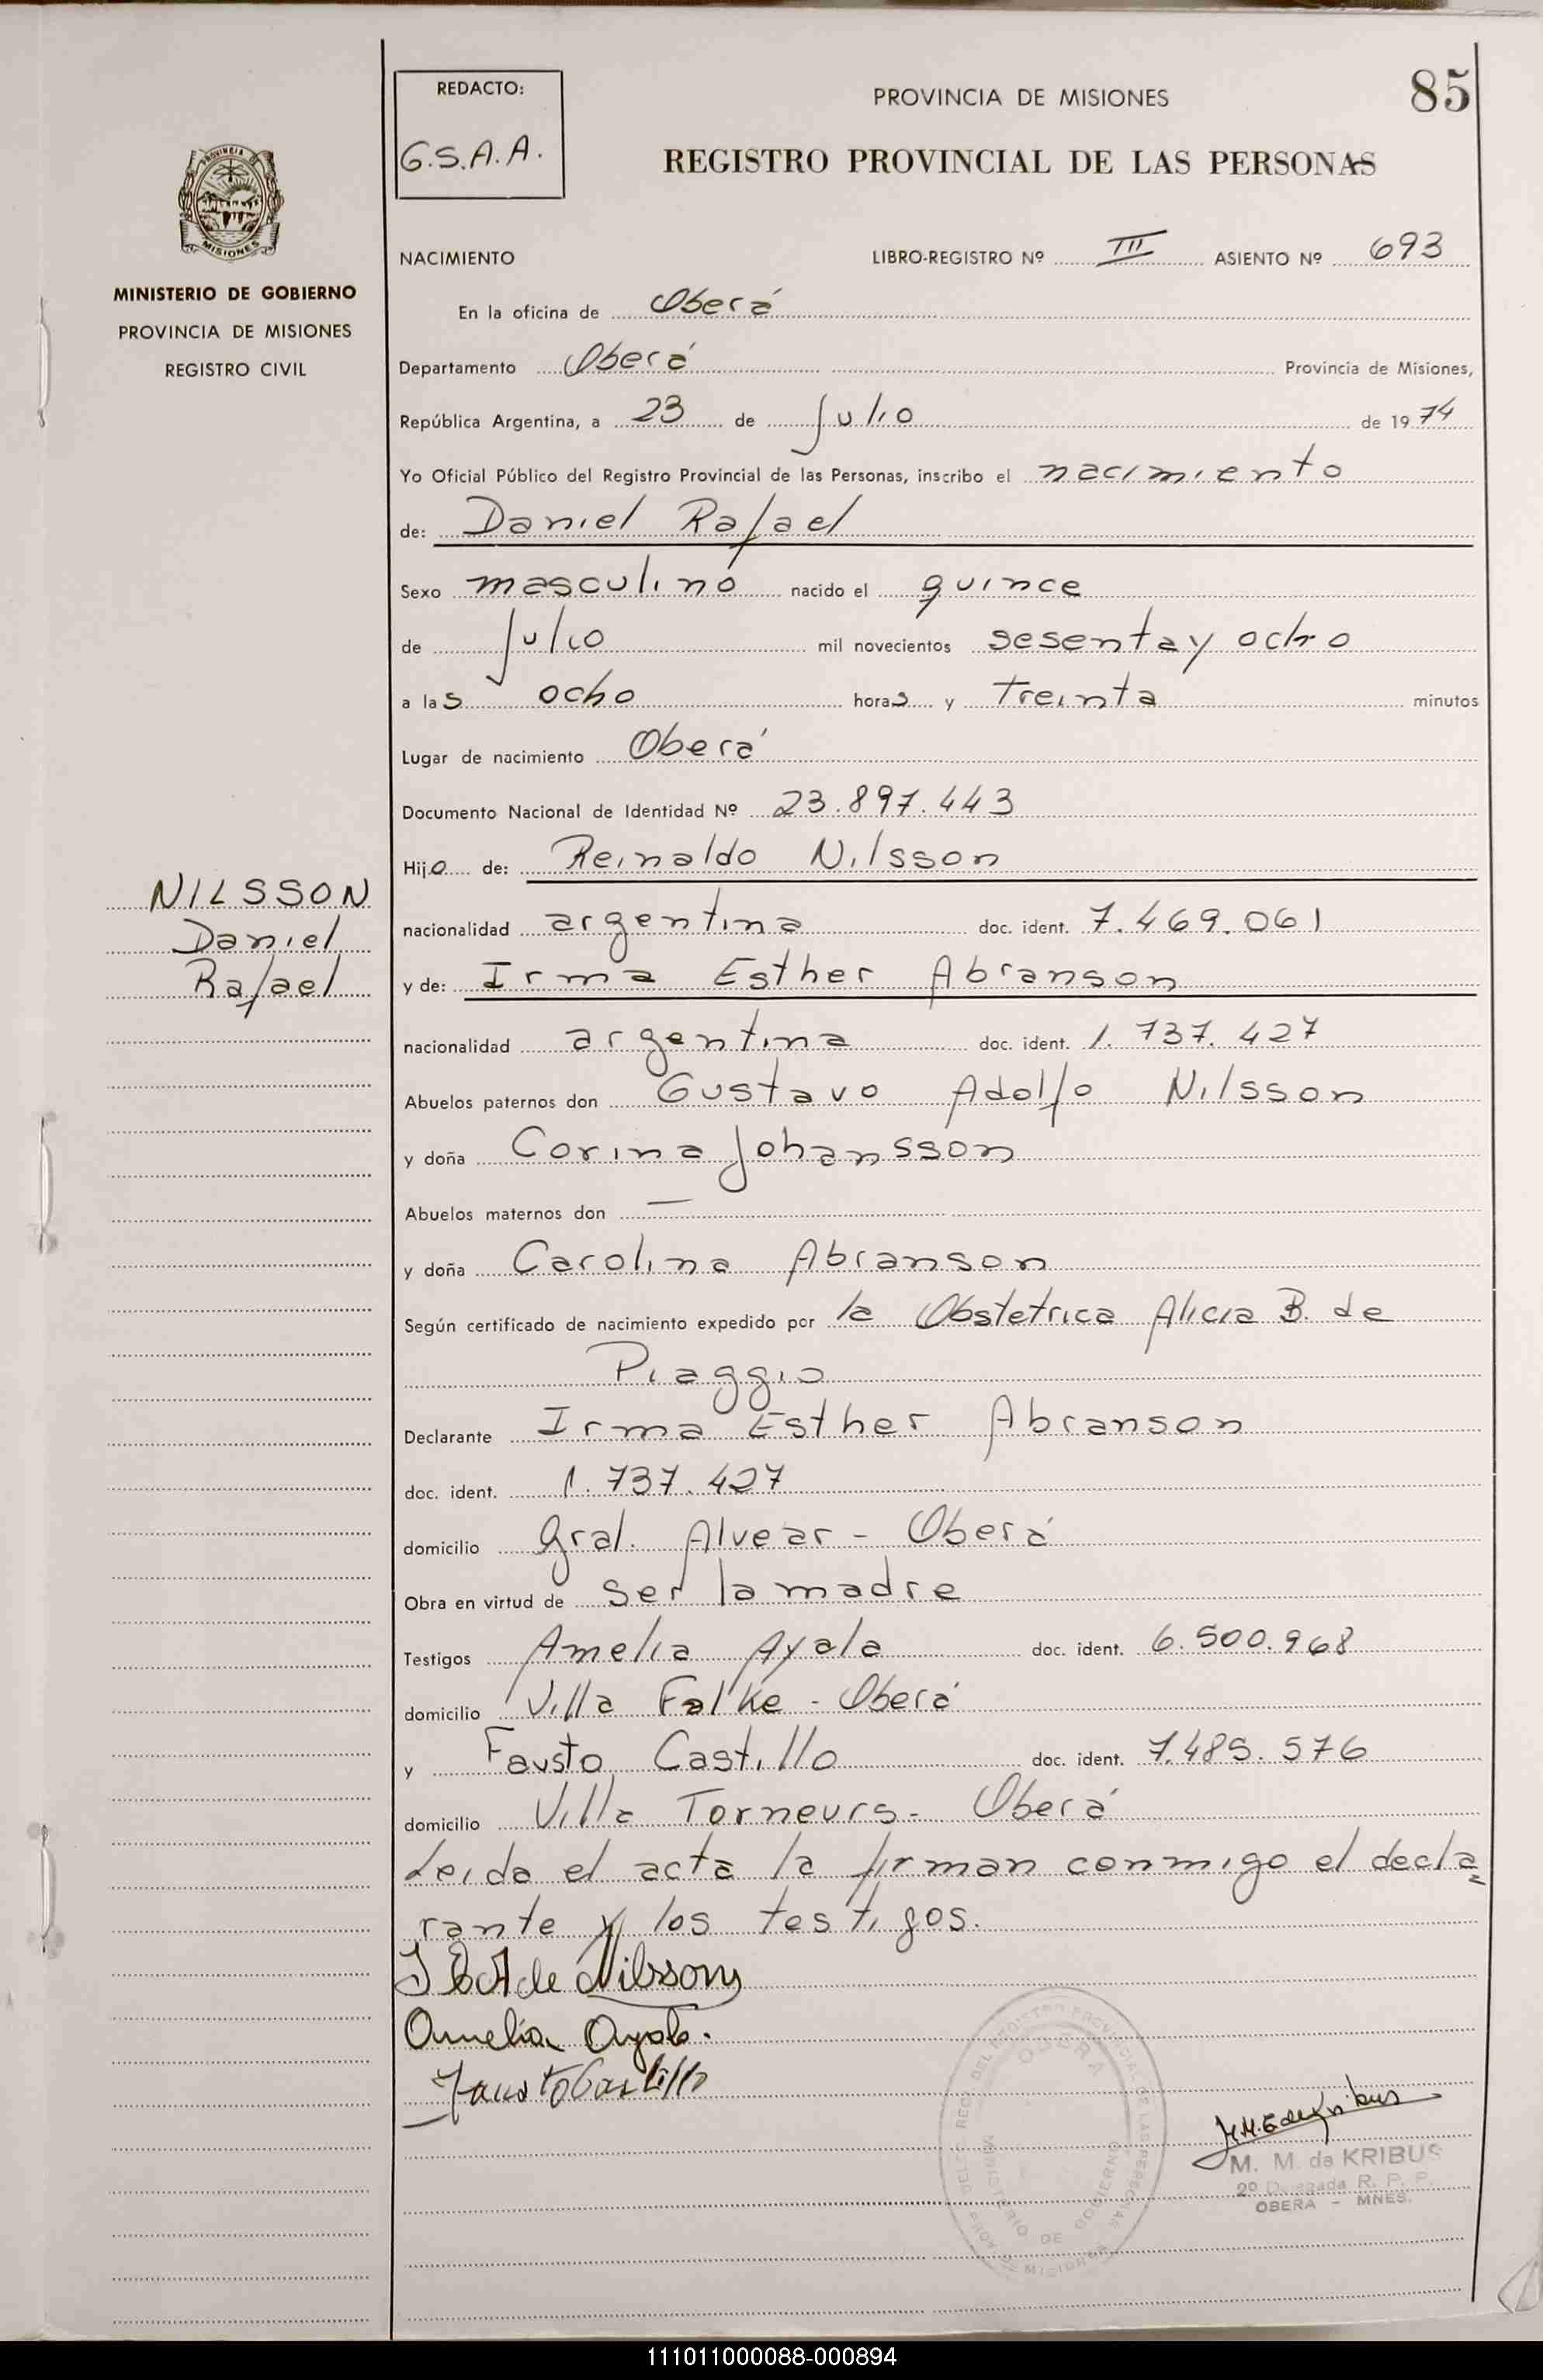 85
REDACTO:
G.S.A.A.
PROVINCIA DE MISIONES
REGISTRO PROVINCIAL DE LAS PERSONAS
PROVINCIA DE
MISIONES
MINISTERIO DE GOBIERNO
PROVINCIA DE MISIONES
REGISTRO CIVIL
NACIMIENTO LIBRO-REGISTRO Nº III ASIENTO Nº 693
En la oficina de Oberá
Departamento Oberá Provincia de Misiones,
República Argentina, a 23 de Julio de 1974
Yo Oficial Público del Registro Provincial de las Personas, inscribo el nacimiento
de: Daniel Rafael
Sexo masculino nacido el quince
de Julio mil novecientos sesenta y ocho
a las ocho horas y Treinta minutos
Lugar de nacimiento Oberá
Documento Nacional de Identidad Nº 23.897.443
Hijo de: Reinaldo Nilsson
NILSSON
Daniel
Rafael
nacionalidad argentina doc. ident. 7.469.061
y de: Irma Esther Abranson
nacionalidad argentina doc. ident. 1.737.427
Abuelos paternos don Gustavo Adolfo Nilsson
y doña Corina Johansson
Abuelos maternos don —
y doña Carolina Abranson
Según certificado de nacimiento expedido por la Obstetrica Alicia B. de
Piaggio
Declarante Irma Esther Abranson
doc. ident. 1.737.427
domicilio Gral. Alvear - Oberá
Obra en virtud de ser la madre
Testigos Amelia Ayala doc. ident. 6.500.968
domicilio Villa Falke - Oberá
y Fausto Castillo doc. ident. 7.485.576
domicilio Villa Torneurs - Oberá
Leida el acta la firman conmigo el decla
rante y los testigos.
de Nilsson
Amelia Ayala.
Fausto Castillo
OBERA
MINISTERIO DE GOBIERNO
M. M. de KRIBUS
2º Delegada R. P. P.
OBERA - MNES.
111011000088-000894